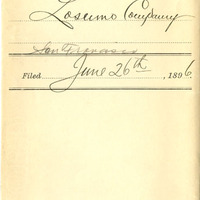 Losumo Company
San Francisco
Filed June 26th, 1896.